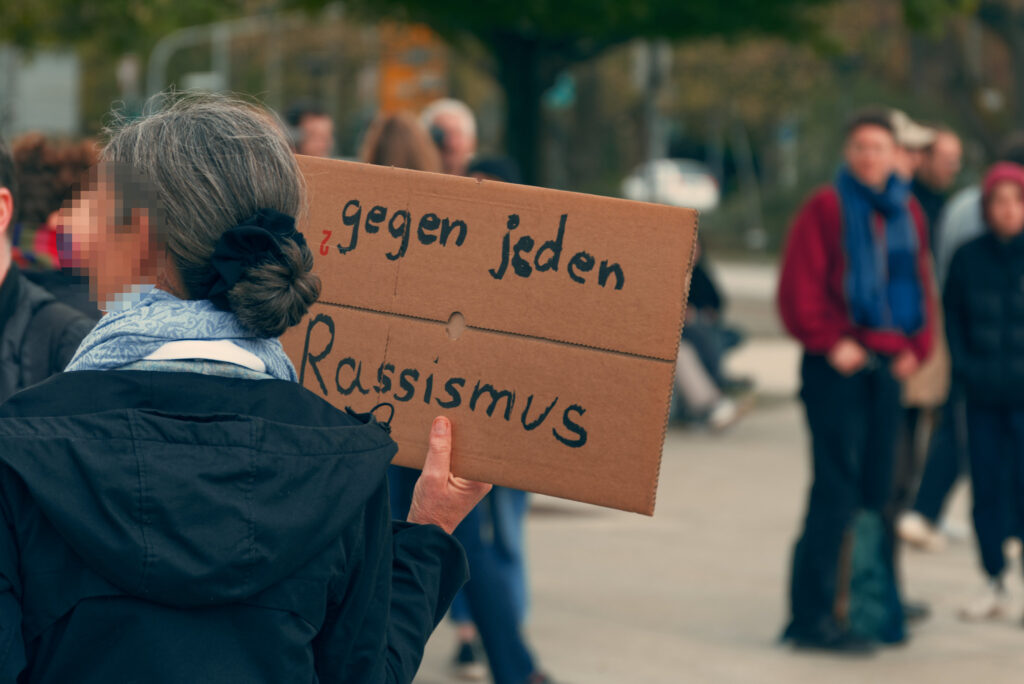 gegen jeden
Rassismus